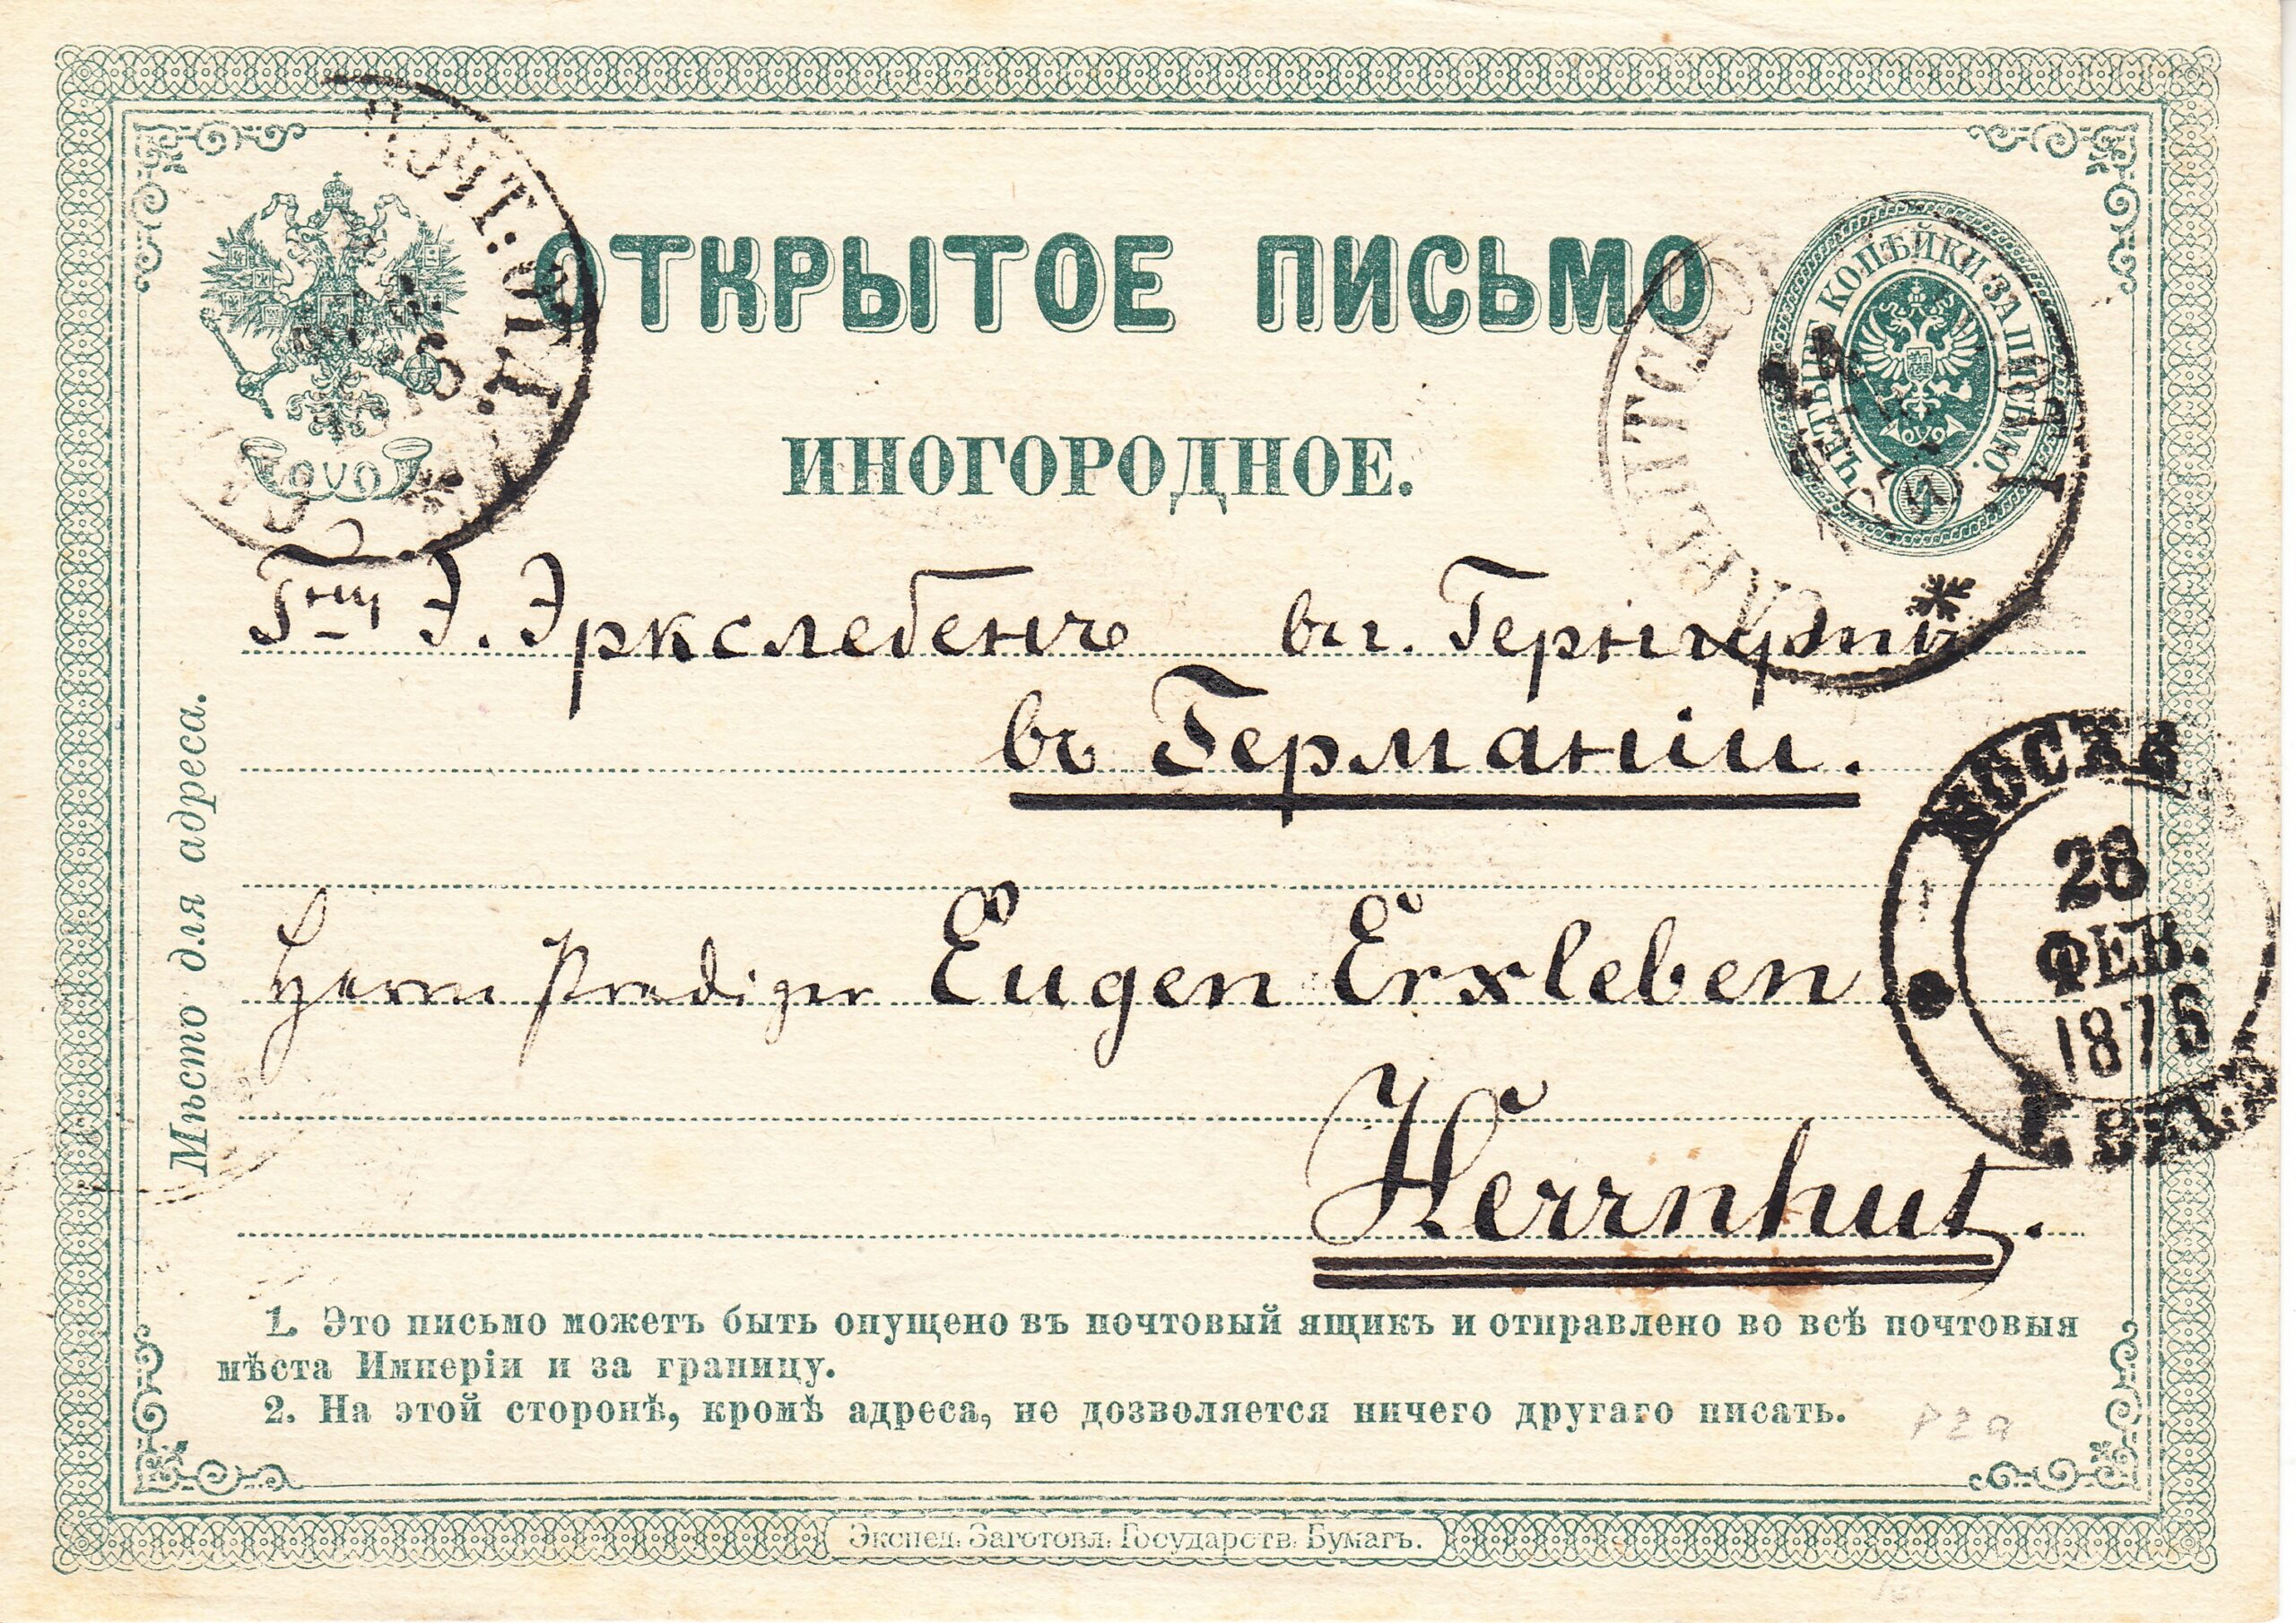 ОТКРЫТОЕ ПИСЬМО
ЧЕТЫРЕ КОПѢЙКИ ЗА ПИСЬМО.
ИНОГОРОДНОЕ.
ПОЧТ:
Э. Эркслебенъ въ г. Гернгутъ
въ Германіи.
Мѣсто для адреса.
МОСКВА
28
ФЕВ.
1876
Herrn Prediger Eugen Erxleben
Herrnhut.
1. Это письмо можетъ быть опущено въ почтовый ящикъ и отправлено во всѣ почтовыя
мѣста Имперіи и за границу.
2. На этой сторонѣ, кромѣ адреса, не дозволяется ничего другаго писать.
P2a
Экспед. Заготовл. Государств. Бумагъ.